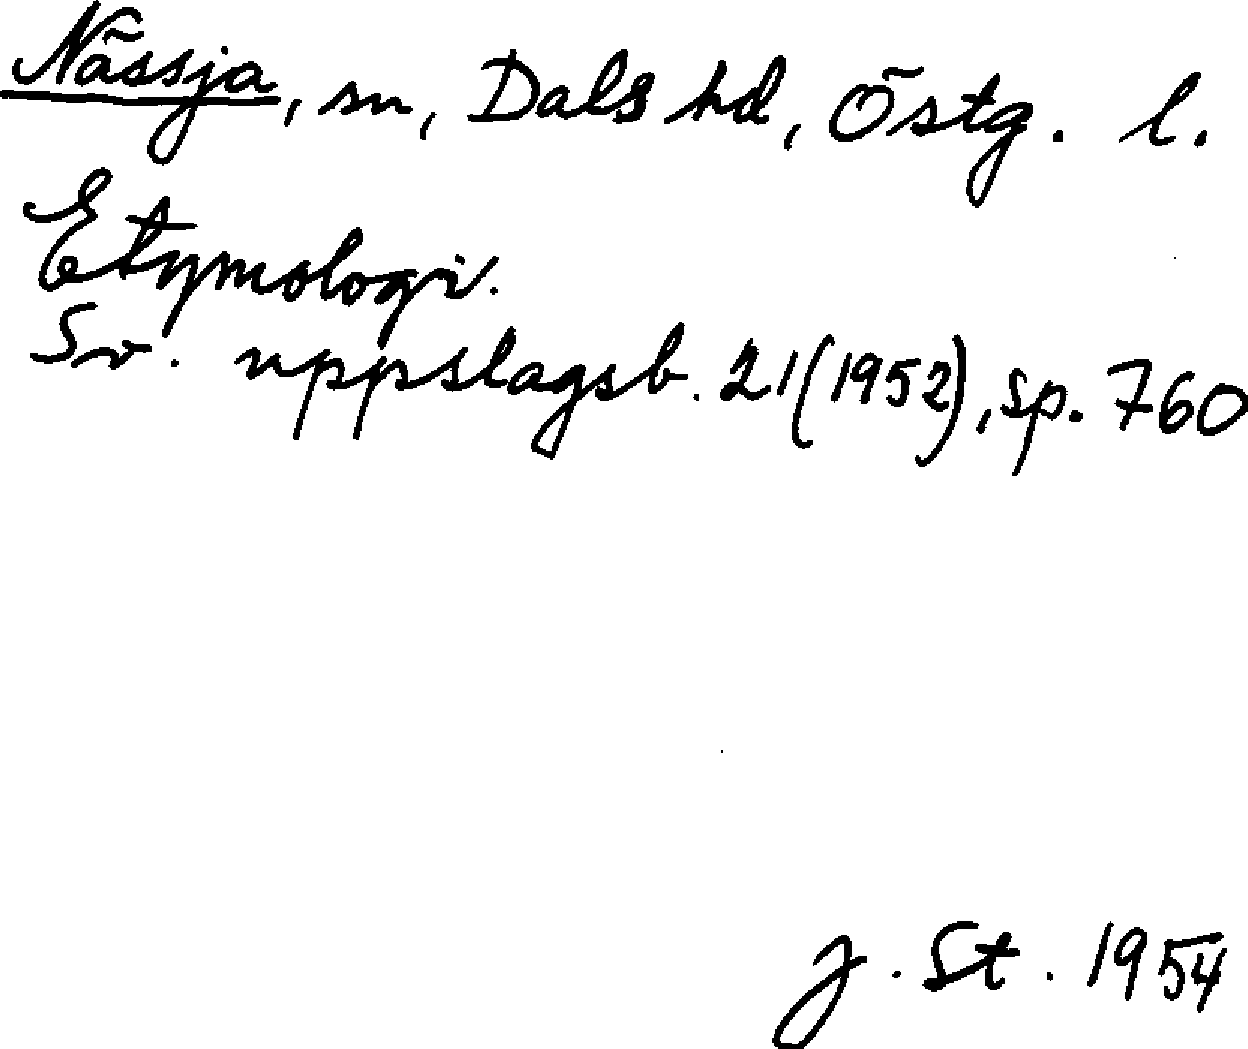 Nässja, sn, Dals hd, Östg. l.
Etymologi.
Sv. uppslagsb. 21(1952), sp. 760
J. St. 1954